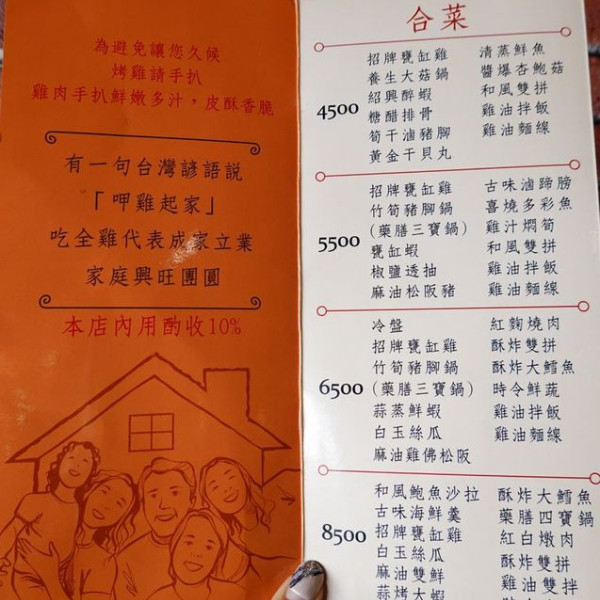 為避免讓您久候
烤雞請手扒
雞肉手扒鮮嫩多汁，皮酥香脆
有一句台灣諺語說
「呷雞起家」
吃全雞代表成家立業
家庭興旺團圓
本店內用酌收10%
合菜
4500
招牌甕缸雞
養生大菇鍋
紹興醉蝦
糖醋排骨
筍干滷豬腳
黃金干貝丸
清蒸鮮魚
醬爆杏鮑菇
和風雙拼
雞油拌飯
雞油麵線
5500
招牌甕缸雞
竹筍豬腳鍋
(藥膳三寶鍋)
甕缸蝦
椒鹽透抽
麻油松阪豬
古味滷蹄膀
喜燒多彩魚
雞汁燜筍
和風雙拼
雞油拌飯
雞油麵線
6500
冷盤
招牌甕缸雞
竹筍豬腳鍋
(藥膳三寶鍋)
蒜蒸鮮蝦
白玉絲瓜
麻油雞佛松阪
紅麴燒肉
酥炸雙拼
酥炸大鱈魚
時令鮮蔬
雞油拌飯
雞油麵線
8500
和風鮑魚沙拉
古味海鮮羹
招牌甕缸雞
白玉絲瓜
麻油雙鮮
蒜烤大蝦
酥炸大鱈魚
藥膳四寶鍋
紅白燉肉
酥炸雙拼
雞油雙拌